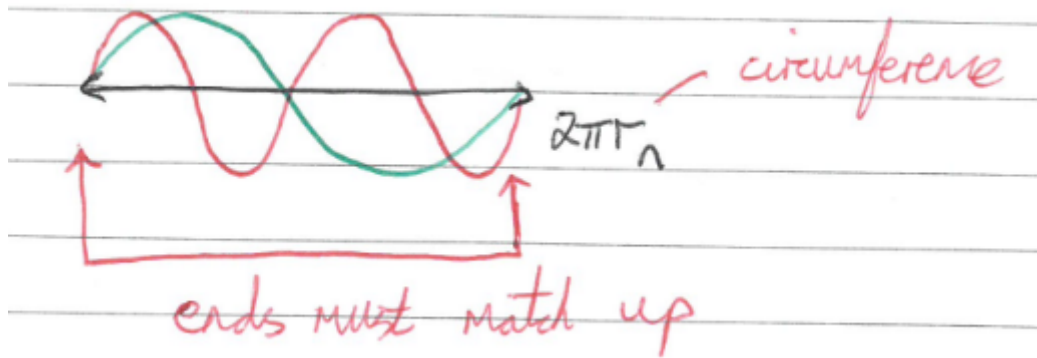 circumference
2πrₙ
ends must match up